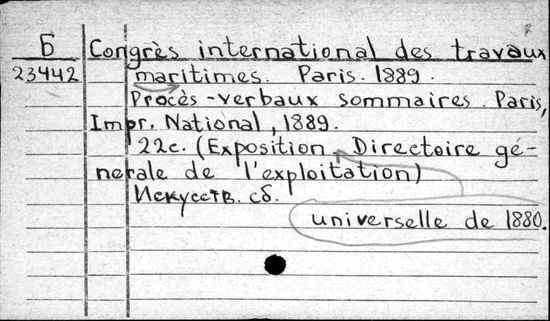 Б Congrès international des travaux
23442 maritimes. Paris. 1889.
Procès-verbaux sommaires. Paris,
Impr. National, 1889.
22с. (Exposition Directoire gé-
nerale de l'exploitation)
Искусств. сб.
universelle de 1880.